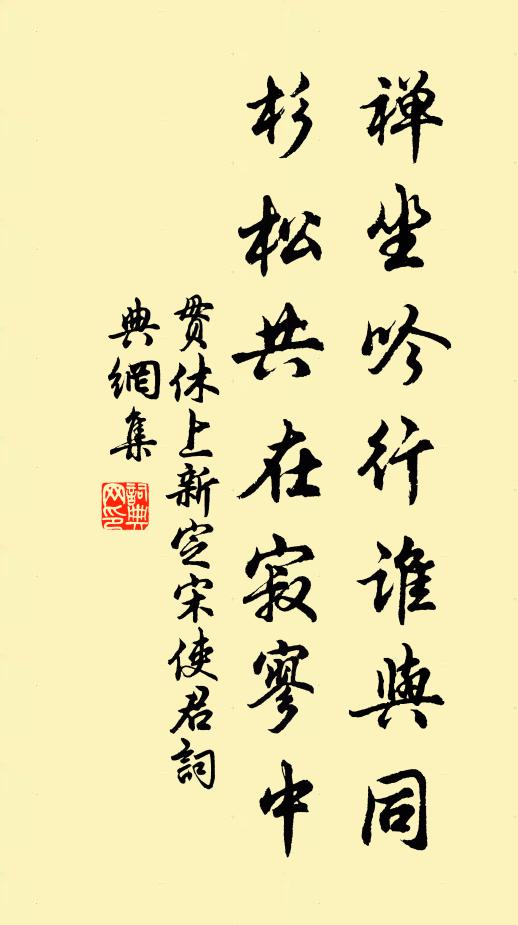 禅坐吟行谁與同
杉松共在寂寥中
贯休上新定宋使君詞
典網集
詞典
网印